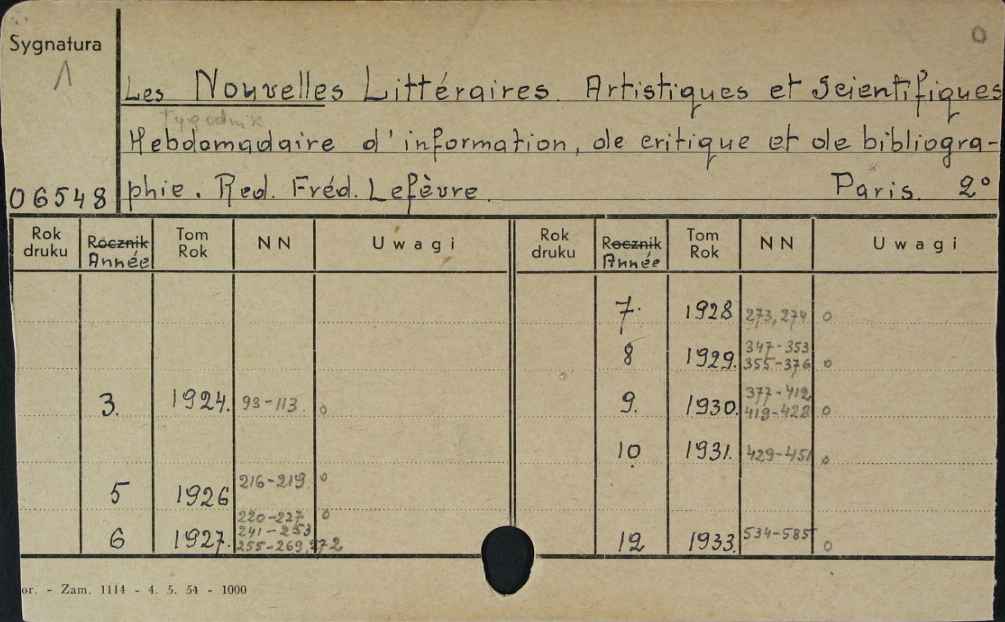 Sygnatura
Les Nouvelles Littéraires. Artistiques et Scientifiques
Tygodnik
Hebdomadaire d'information, de critique et de bibliogra-
06548 phie. Red. Fréd. Lefèvre. Paris. 2°
Rok druku Rocznik Année Tom Rok NN Uwagi Rok druku Rocznik Année Tom Rok NN Uwagi
7. 1928 273, 274 o
8 1929. 347-353
355-376 o
3. 1924. 93-113 o 9. 1930. 377-412
419-428 o
10 1931. 429-451 o
5 1926 216-219 o
220-227 o
6 1927. 241-253
255-269, 272
12 1933. 534-585 o
or. - Zam. 1114 - 4. 5. 54 - 1000